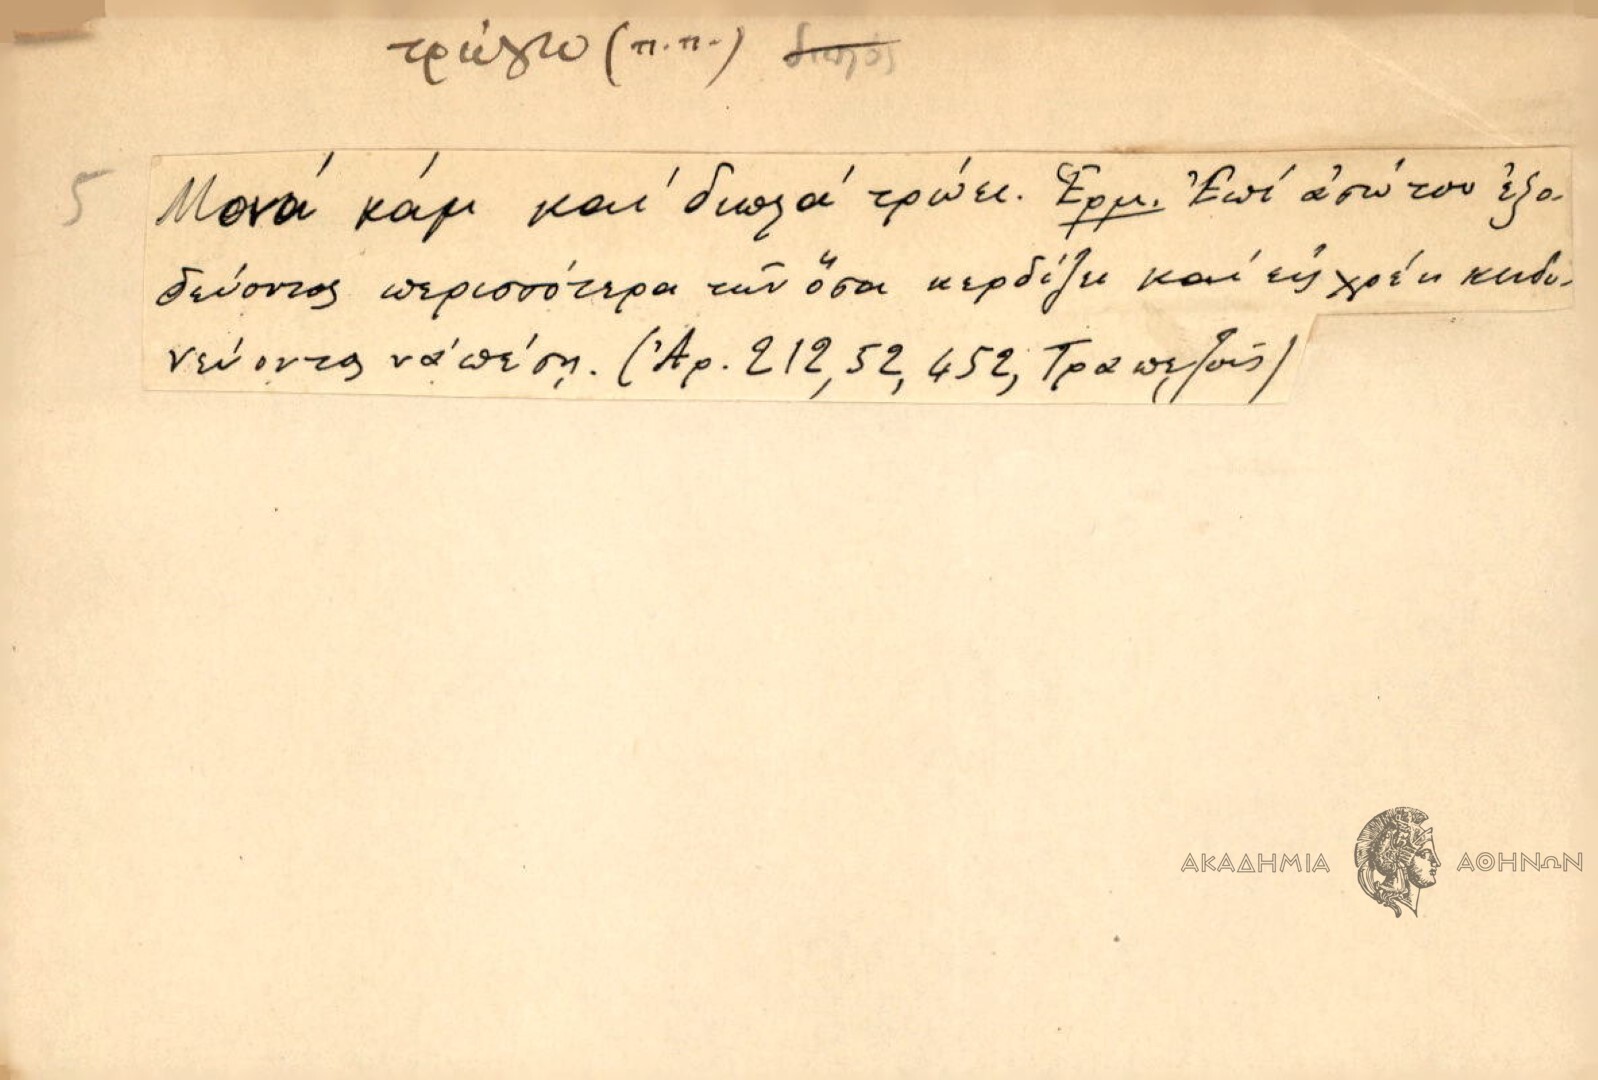 τρώγω (π.π.) διπλός
5
Μονά κάμ καί διπλά τρώει. Ἑρμ. Ἐπί ἀσώτου ἐξο-
δεύοντος περισσότερα τῶν ὅσα κερδίζει καί εἰς χρέη κινδυ-
νεύοντος νά πέσῃ. (Ἀρ. 212, 52, 452, Τραπεζοῦς)
ΑΚΑΔΗΜΙΑ ΑΘΗΝΩΝ